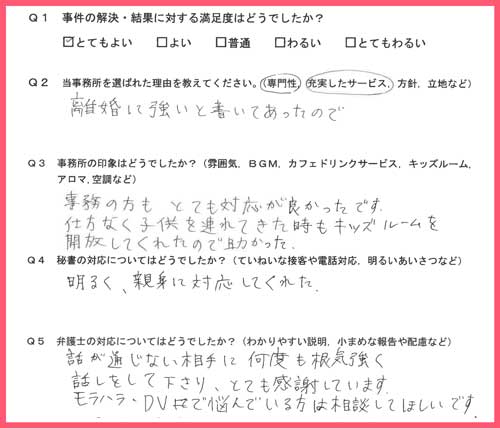 Q1 事件の解決・結果に対する満足度はどうでしたか？
☑とてもよい □よい □普通 □わるい □とてもわるい
Q2 当事務所を選ばれた理由を教えてください。(専門性, 充実したサービス, 方針, 立地など)
離婚に強いと書いてあったので
Q3 事務所の印象はどうでしたか？(雰囲気, BGM, カフェドリンクサービス, キッズルーム,
アロマ, 空調など)
事務の方も とても対応が良かったです.
仕方なく子供を連れてきた時もキッズルームを
開放してくれたので助かった.
Q4 秘書の対応についてはどうでしたか？(ていねいな接客や電話対応, 明るいあいさつなど)
明るく、親身に対応してくれた.
Q5 弁護士の対応についてはどうでしたか？(わかりやすい説明, 小まめな報告や配慮など)
話が通じない相手に何度も根気強く
話しをして下さり、とても感謝しています.
モラハラ・DVで悩んでいる方は相談してほしいです